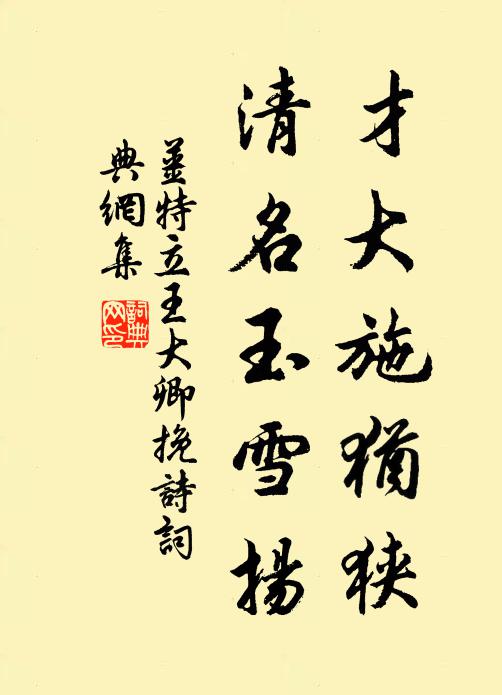 才大施猶狹
清名玉雪揚
姜特立王大卿挽詩詞
典網集
詞典網印